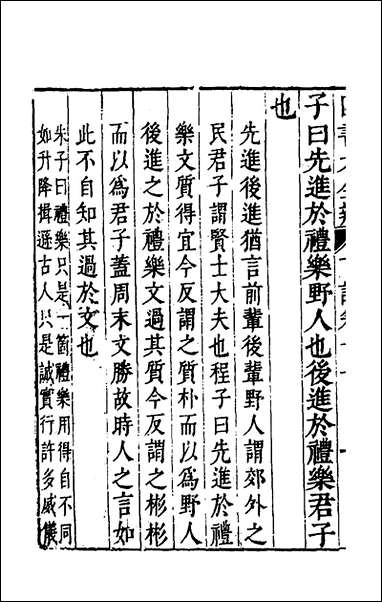 子曰先進於禮樂野人也後進於禮樂君子
也
先進後進猶言前輩後輩野人謂郊外之
民君子謂賢士大夫也程子曰先進於禮
樂文質得宜今反謂之質朴而以爲野人
後進之於禮樂文過其質今反謂之彬彬
而以爲君子蓋周末文勝故時人之言如
此不自知其過於文也
朱子曰禮樂只是一箇禮樂用得自不同
如升降揖遜古人只是誠實行許多威儀